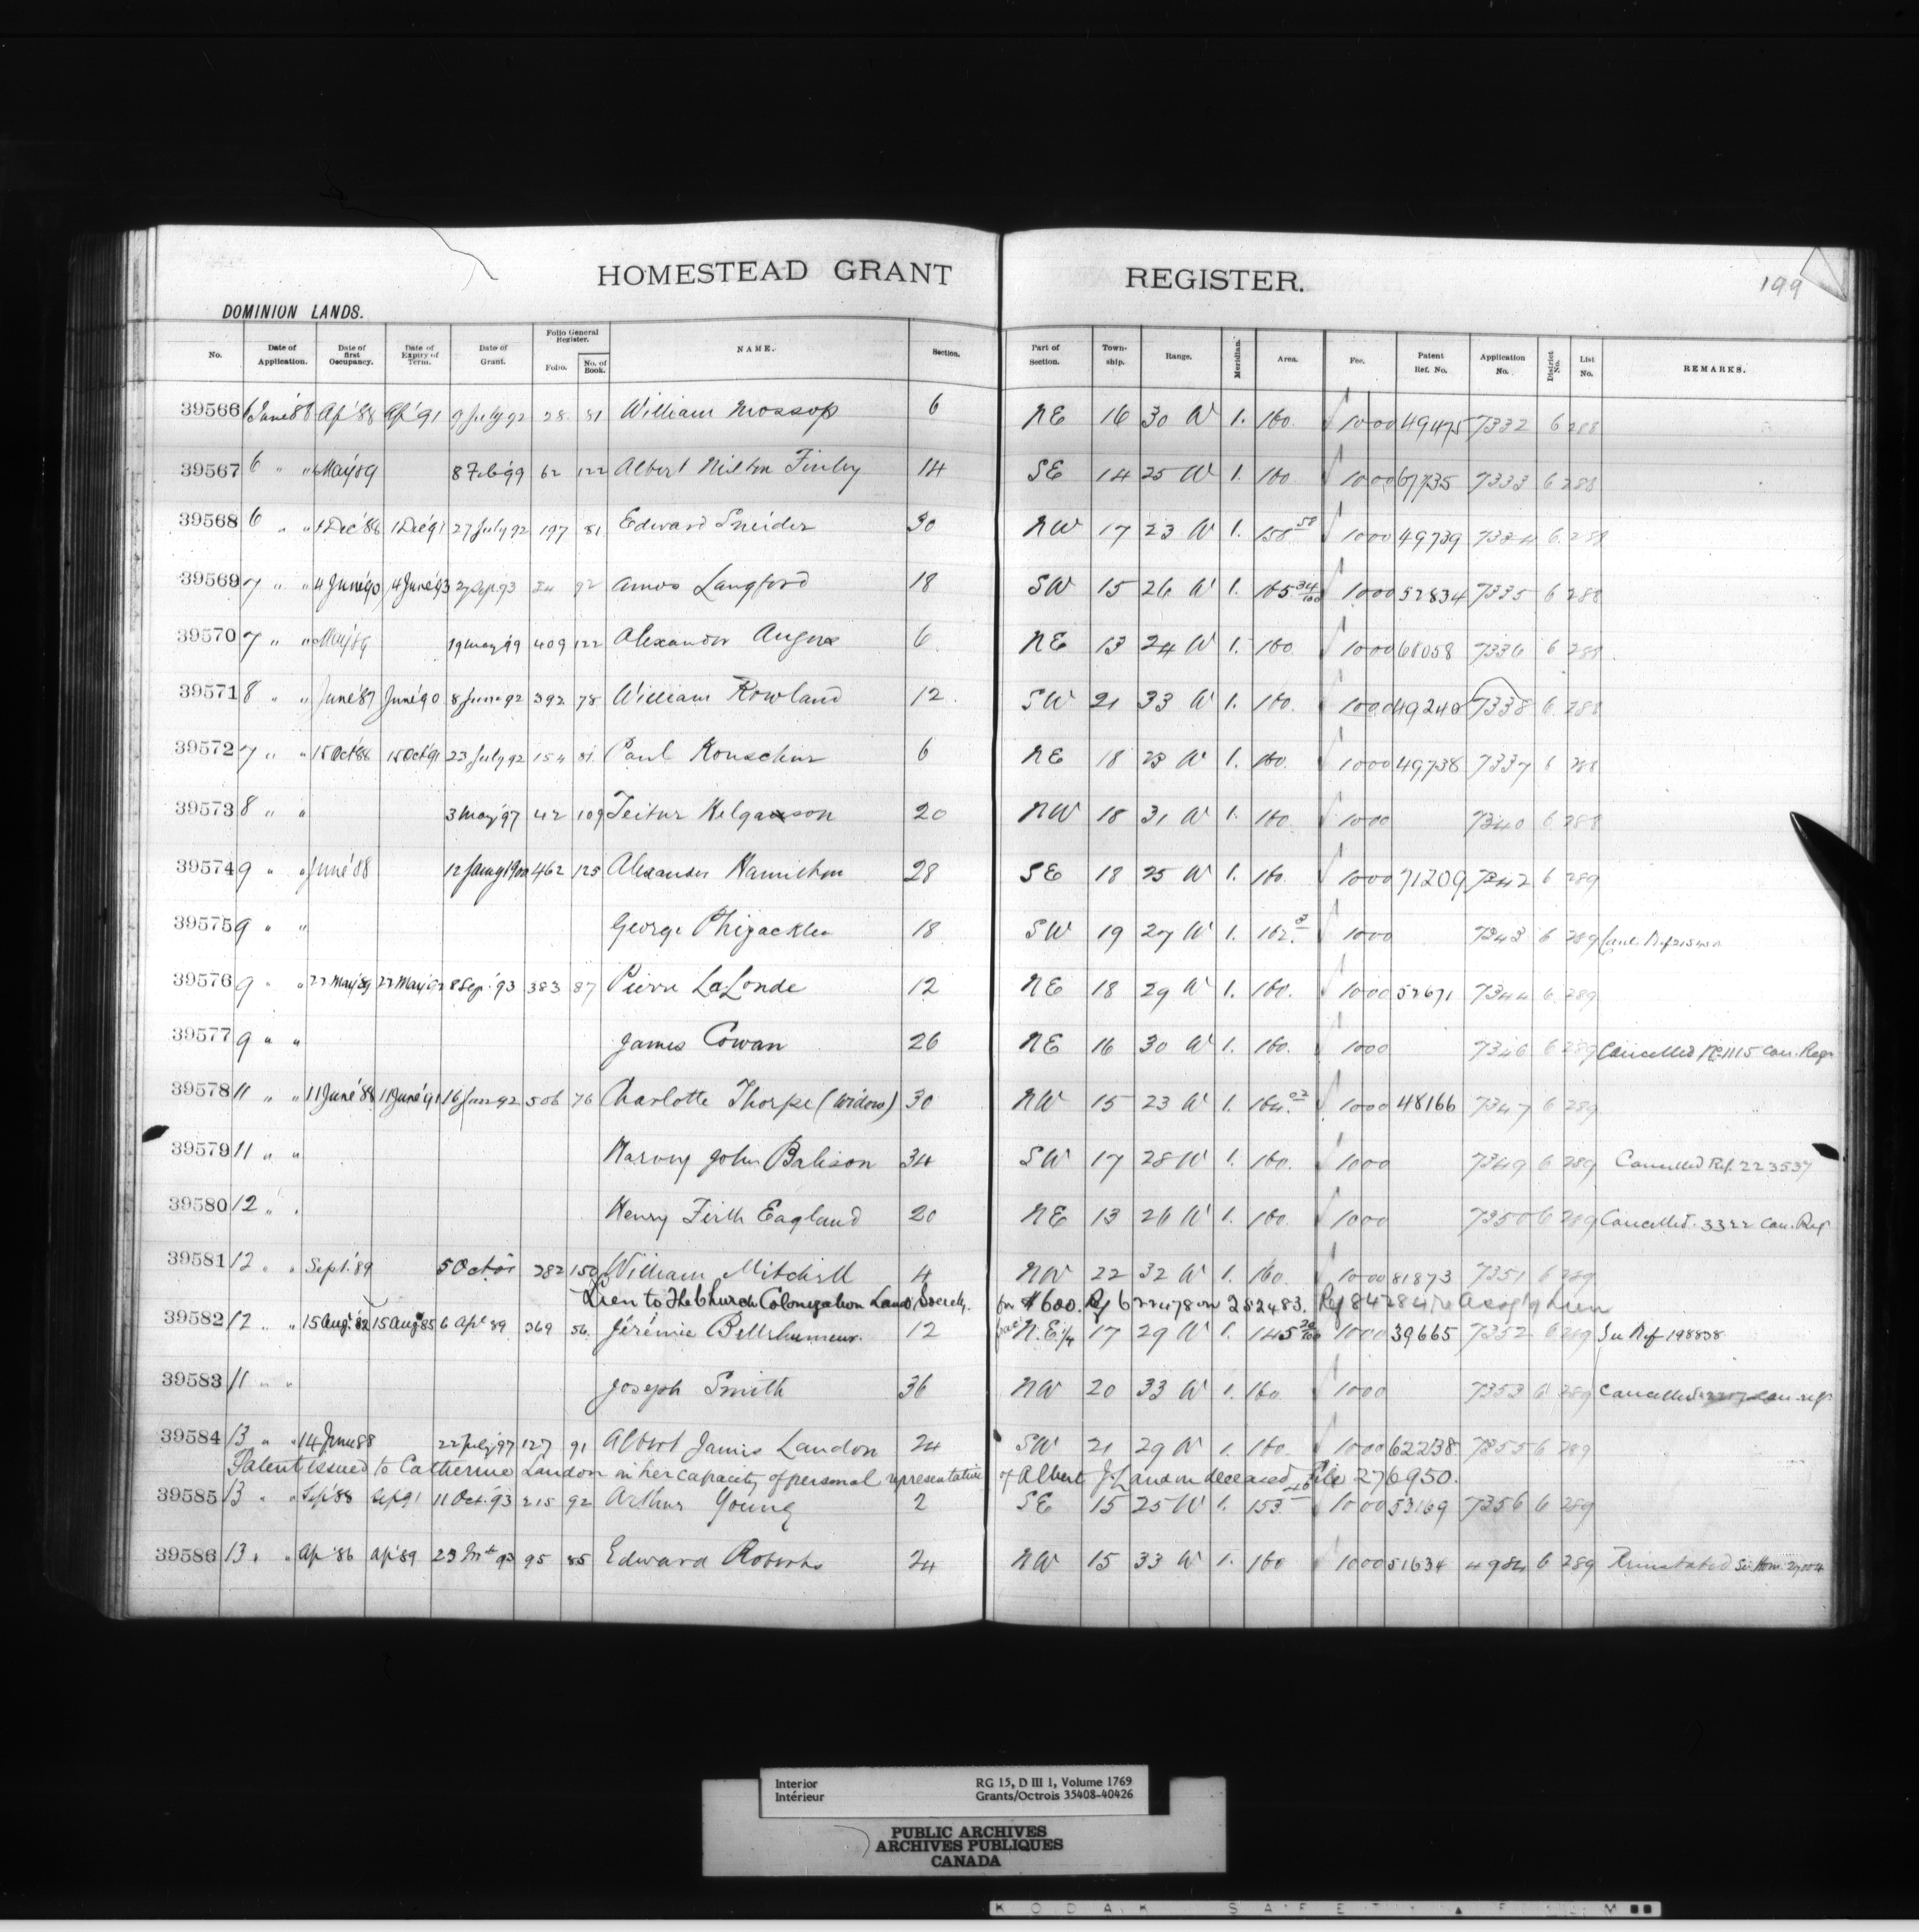 HOMESTEAD GRANT REGISTER. 199
DOMINION LANDS.
No. Date of Application. Date of first Occupancy. Date of Expiry of Term. Date of Grant. Folio General Register. Folio. No. of Book. NAME. Section. Part of Section. Township. Range. Meridian. Area. Fee. Patent Ref. No. Application No. District No. List No. REMARKS.
39566 6 June '88 Ap '88 Ap '91 9 July 92 28 81 William Mossop 6 NE 16 30 W 1. 160. 1000 49475 7332 6 288
39567 6 " " May '89 8 Feb '99 62 122 Albert Milton Finley 14 SE 14 25 W 1. 160 1000 67735 7333 6 288
39568 6 " " 1 Dec '88 1 Dec '91 27 July 92 197 81 Edward Sneider 30 NW 17 23 W 1. 158 58 1000 49739 7334 6 288
39569 7 " " 4 June '90 4 June '93 27 Sep 93 92 Amos Langford 18 SW 15 26 W 1. 165 34/100 1000 52834 7335 6 288
39570 7 " " May '89 19 May 99 409 122 Alexander Angus 6 NE 13 24 W 1. 160. 1000 68058 7336 6 288
39571 8 " " June '87 June '90 8 June 92 392 78 William Rowland 12 SW 21 33 W 1. 160. 1000 49240 7338 6 288
39572 7 " " 15 Oct '88 15 Oct '91 23 July 92 154 81 Paul Kouschur 6 NE 18 23 W 1. 160. 1000 49738 7337 6 288
39573 8 " " 3 May '97 42 109 Teitur Helgason 20 NW 18 31 W 1. 160. 1000 7340 6 288
39574 9 " " June '88 12 Jany 1900 462 125 Alexander Hamilton 28 SE 18 25 W 1. 160. 1000 71209 7342 6 289
39575 9 " " George 18 SW 19 27 W 1. 162. 1000 7343 6 289 Canc. Ref
39576 9 " " 22 May '89 22 May '92 8 Sep. '93 383 87 Pierre LaLonde 12 NE 18 29 W 1. 160. 1000 52671 7344 6 289
39577 9 " " James Cowan 26 NE 16 30 W 1. 160. 1000 7346 6 289 Cancelled No 1115 Can. Regr
39578 11 " " 11 June '88 11 June '91 16 Jan 92 506 76 Charlotte Thorpe (Widow) 30 NW 15 23 W 1. 164. 02 1000 48166 7347 6 289
39579 11 " " Harvey John Babison 34 SW 17 28 W 1. 160. 1000 7349 6 289 Cancelled Ref. 223537
39580 12 " " Henry Firth Eagland 20 NE 13 26 W 1. 160. 1000 7350 6 289 Cancelled. 3322 Can. Reg
39581 12 " " Sept. '89 5 Oct 282 150 William Mitchell 4 NW 22 32 W 1. 160. 1000 81873 7351 6 289
Lien to The Church Colonization Land Society. for $600. Ref 622478 on 252483. Ref 842841 re Assig'g Lien
39582 12 " " 15 Aug. '82 15 Aug '85 6 Apl '89 369 56. Jérémie Bellehumeur. 12 frac N.E. 1/4 17 29 W 1. 145 20/100 1000 39665 7352 6 289 See Ref 198838
39583 11 " " Joseph Smith 36 NW 20 33 W 1. 160 1000 7353 6 289 Cancelled Can. Regr
39584 13 " " 14 June 88 22 July '97 127 91 Albert James Landon 24 SW 21 29 W 1. 160. 1000 62238 7355 6 289
Patent issued to Catherine Landon in her capacity of personal representative of Albert J. Landon deceased File 276950.
39585 13 " " Sep '88 Sep 91 11 Oct. '93 215 92 Arthur Young 2 SE 15 25 W 1. 153. 40 1000 53169 7356 6 289
39586 13 " " Ap '86 Ap '89 23 Mch 93 95 85 Edward Roberts 24 NW 15 33 W 1. 160 1000 51634 4984 6 289 Reinstated See Hom.
Interior RG 15, D III 1, Volume 1769
Intérieur Grants/Octrois 35408-40426
PUBLIC ARCHIVES
ARCHIVES PUBLIQUES
CANADA
KODAK SAFETY FILM